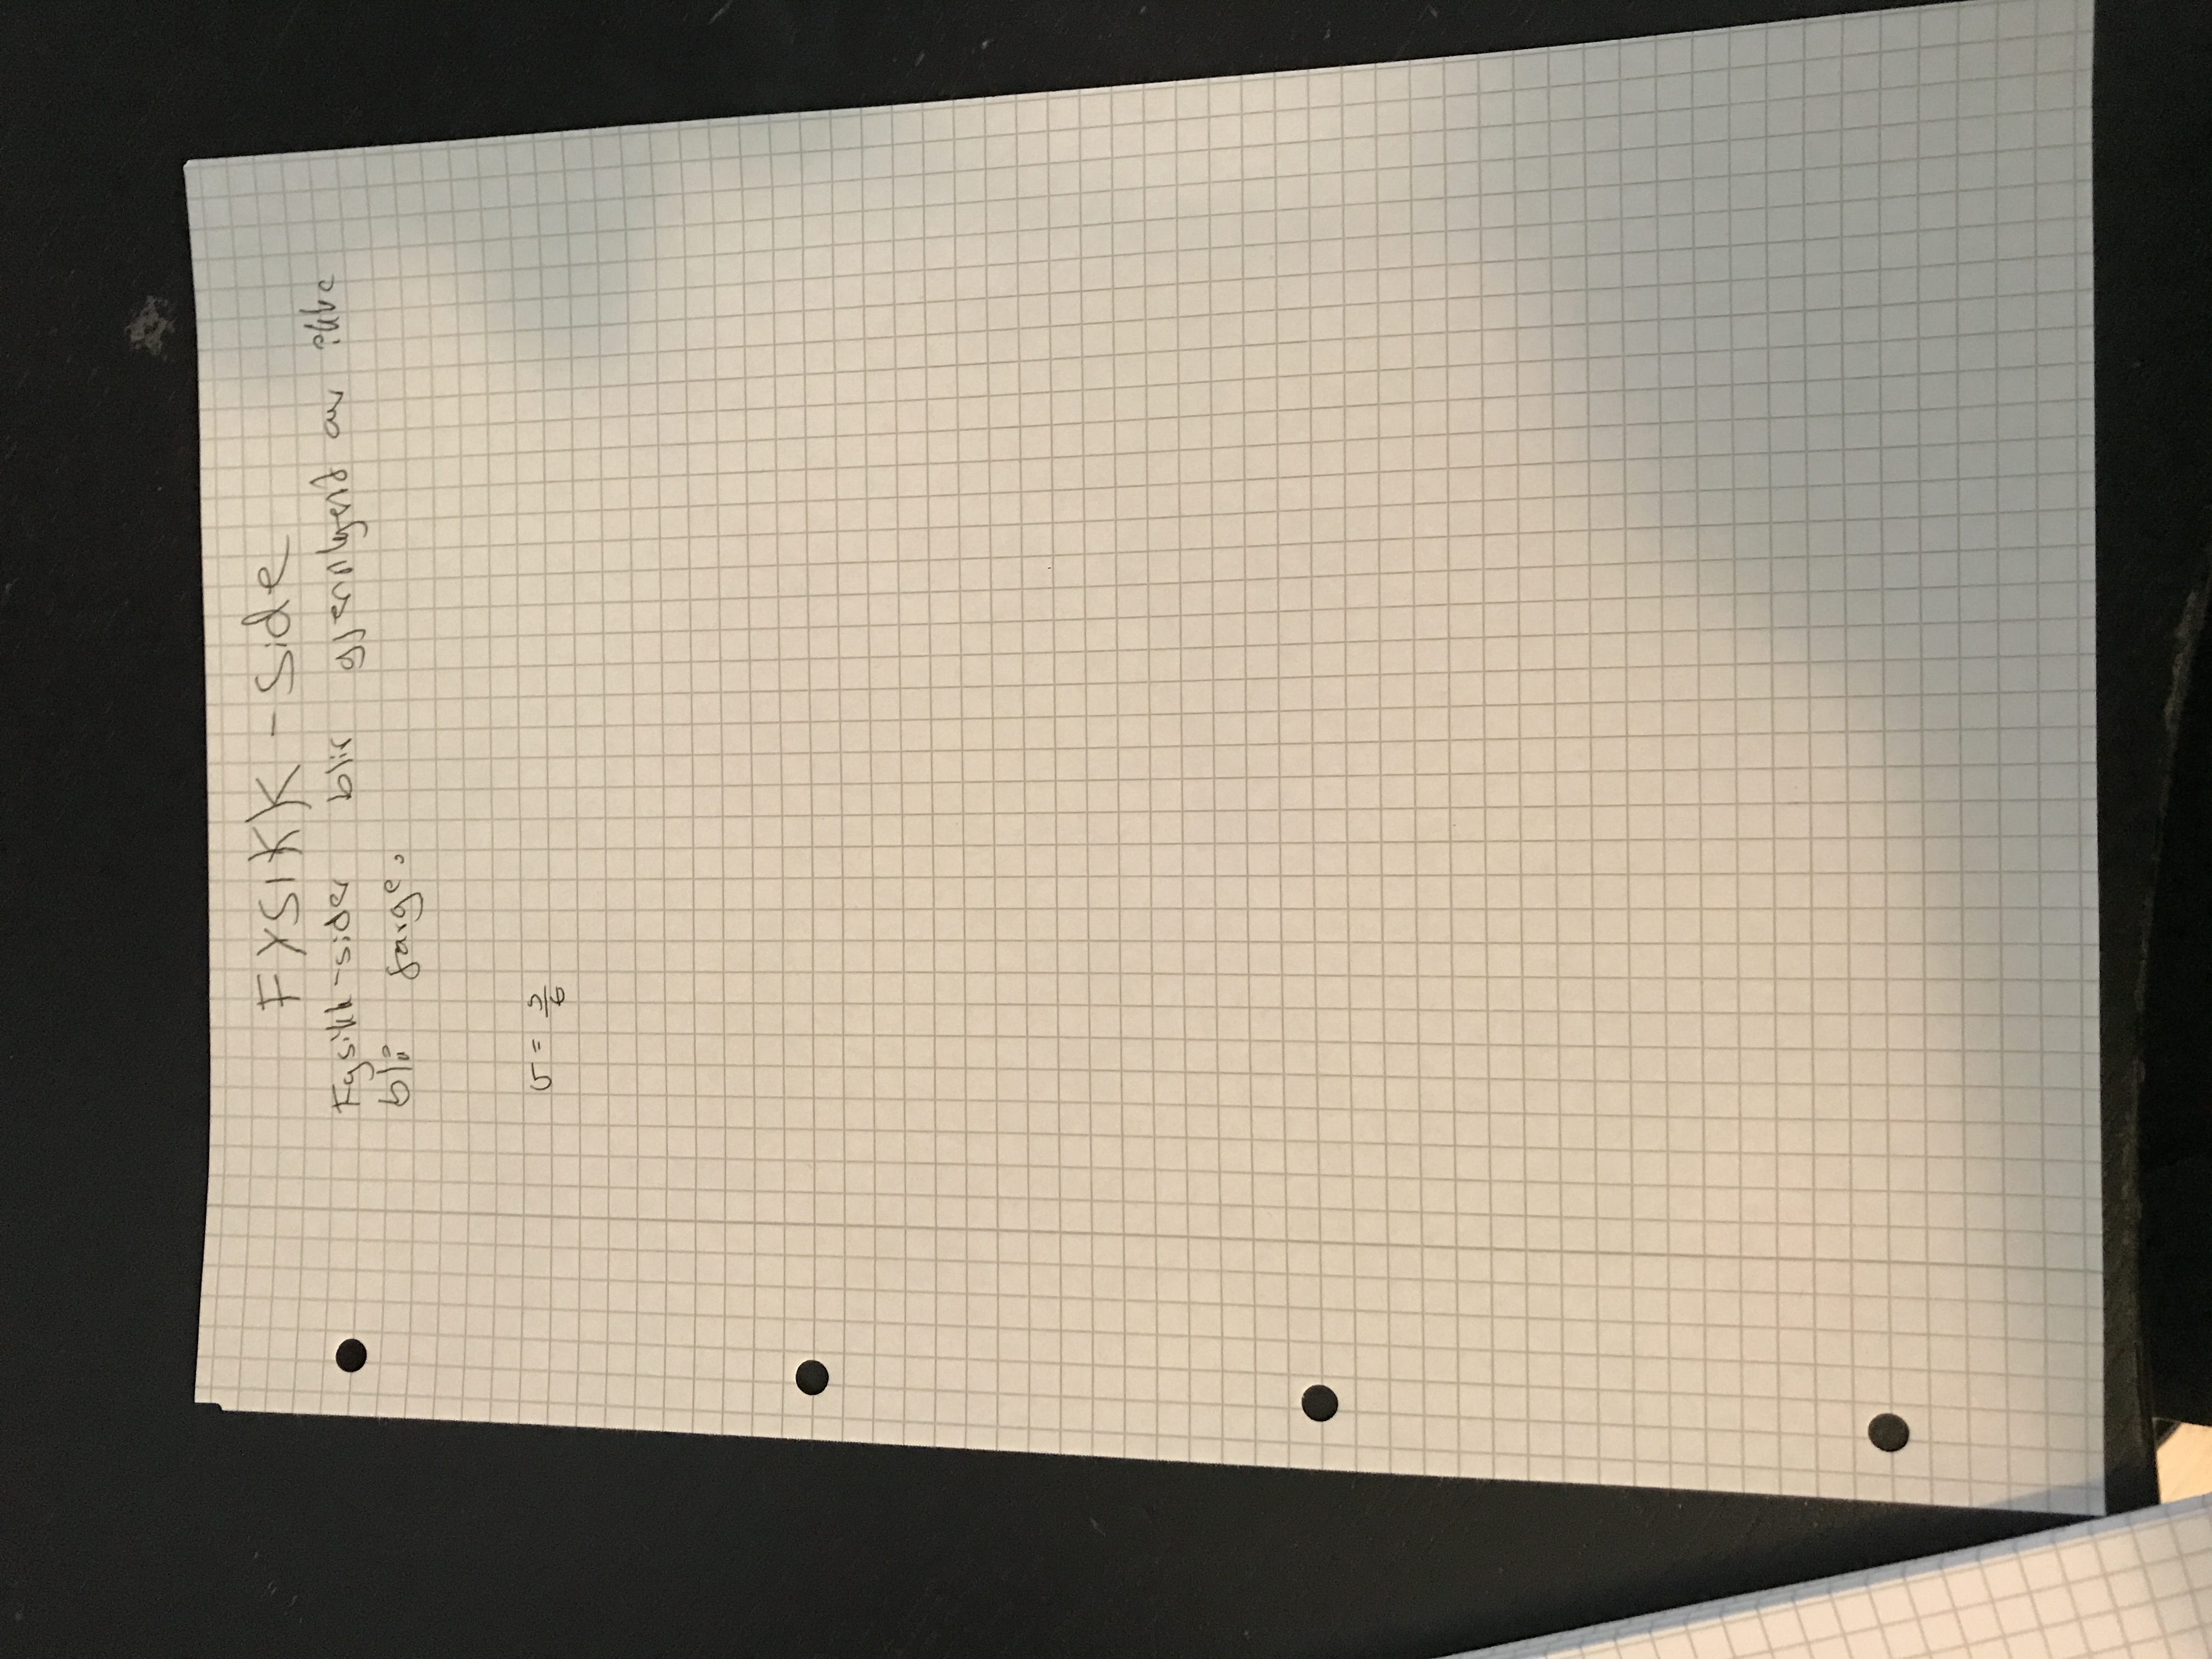 FYSIKK - side
Fysikk-sider blir gjennlyend av ikke
blå farge.
v = s/t